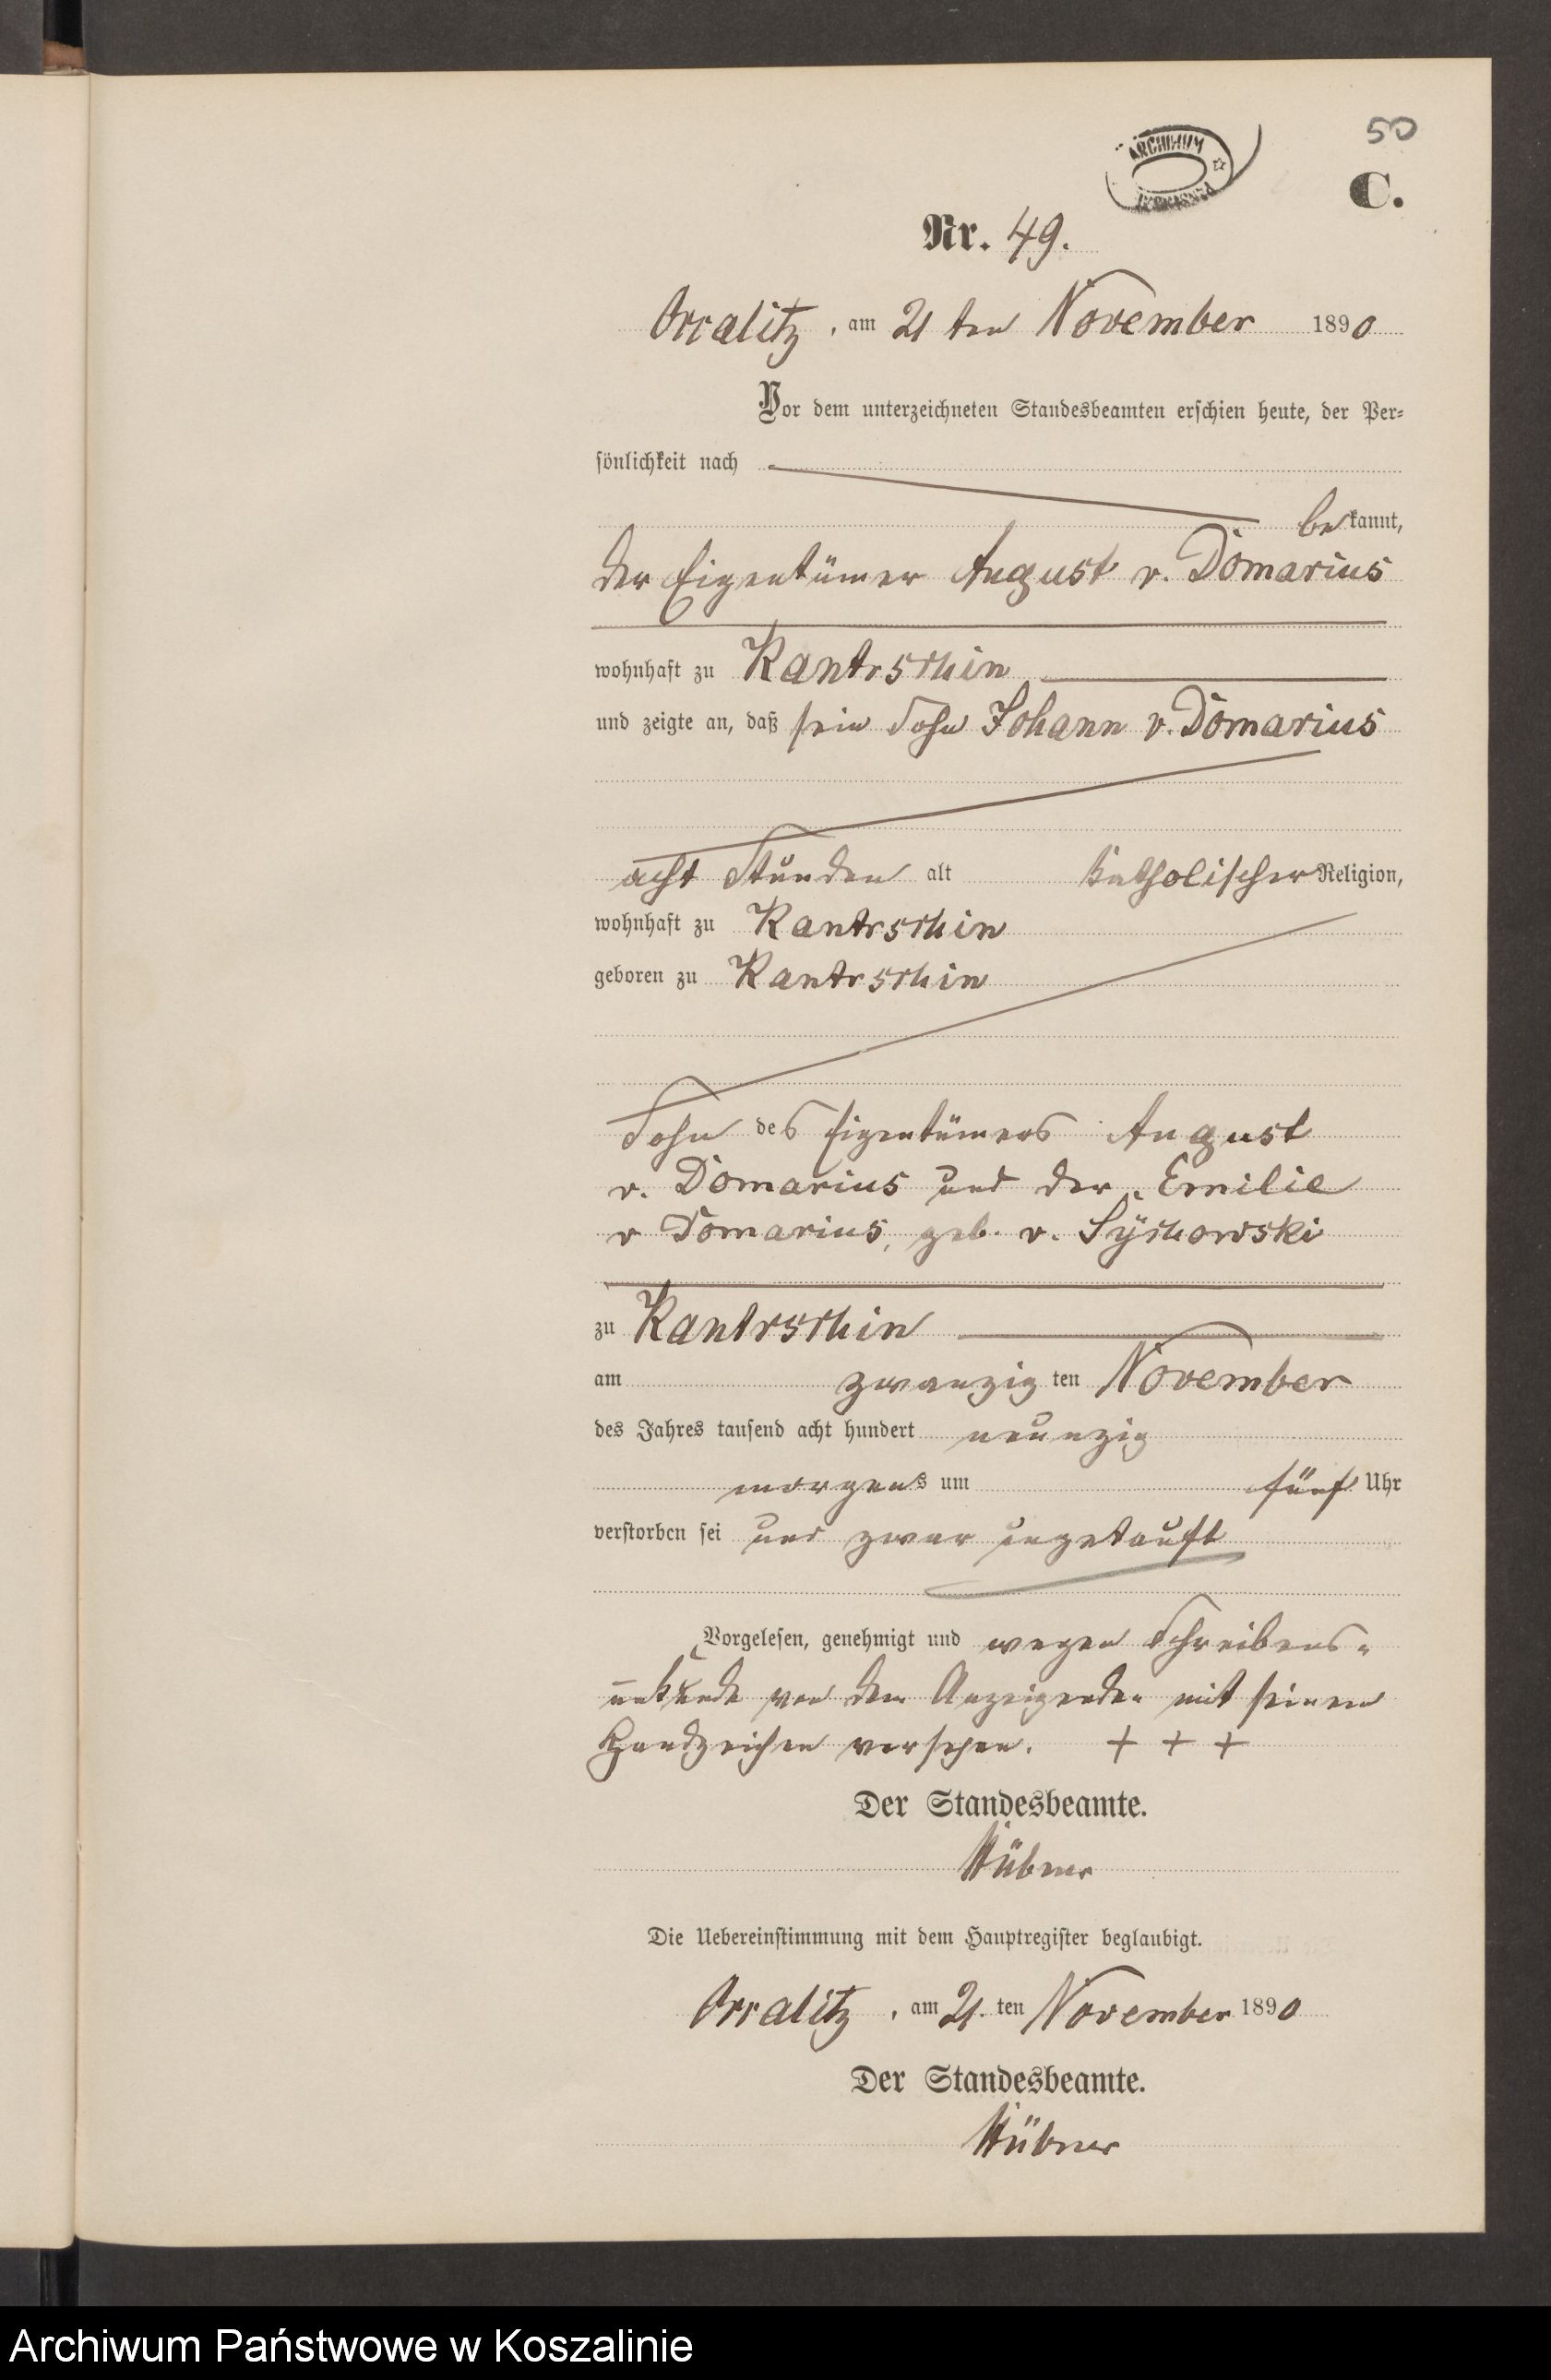 50
ARCHIWUM
C.
Nr. 49.
Occalitz, am 21 ten November 1890
Vor dem unterzeichneten Standesbeamten erschien heute, der Per-
sönlichkeit nach
bekannt,
der Eigentümer August v. Domarius
wohnhaft zu Kantrschin
und zeigte an, daß sein Sohn Johann v. Domarius
acht Stunden alt katholischer Religion,
wohnhaft zu Kantrschin
geboren zu Kantrschin
Sohn des Eigentümers August
v. Domarius und der Emilie
v Domarius, geb. v. Sychowski
zu Kantrschin
am zwanzig ten November
des Jahres tausend acht hundert neunzig
morgens um fünf Uhr
verstorben sei und zwar ungetauft
Vorgelesen, genehmigt und wegen Schreibens-
unkunde von dem Anzeigenden mit seinem
Handzeichen versehen. + + +
Der Standesbeamte.
Hübner
Die Uebereinstimmung mit dem Hauptregister beglaubigt.
Occalitz, am 21. ten November 1890
Der Standesbeamte.
Hübner
Archiwum Państwowe w Koszalinie